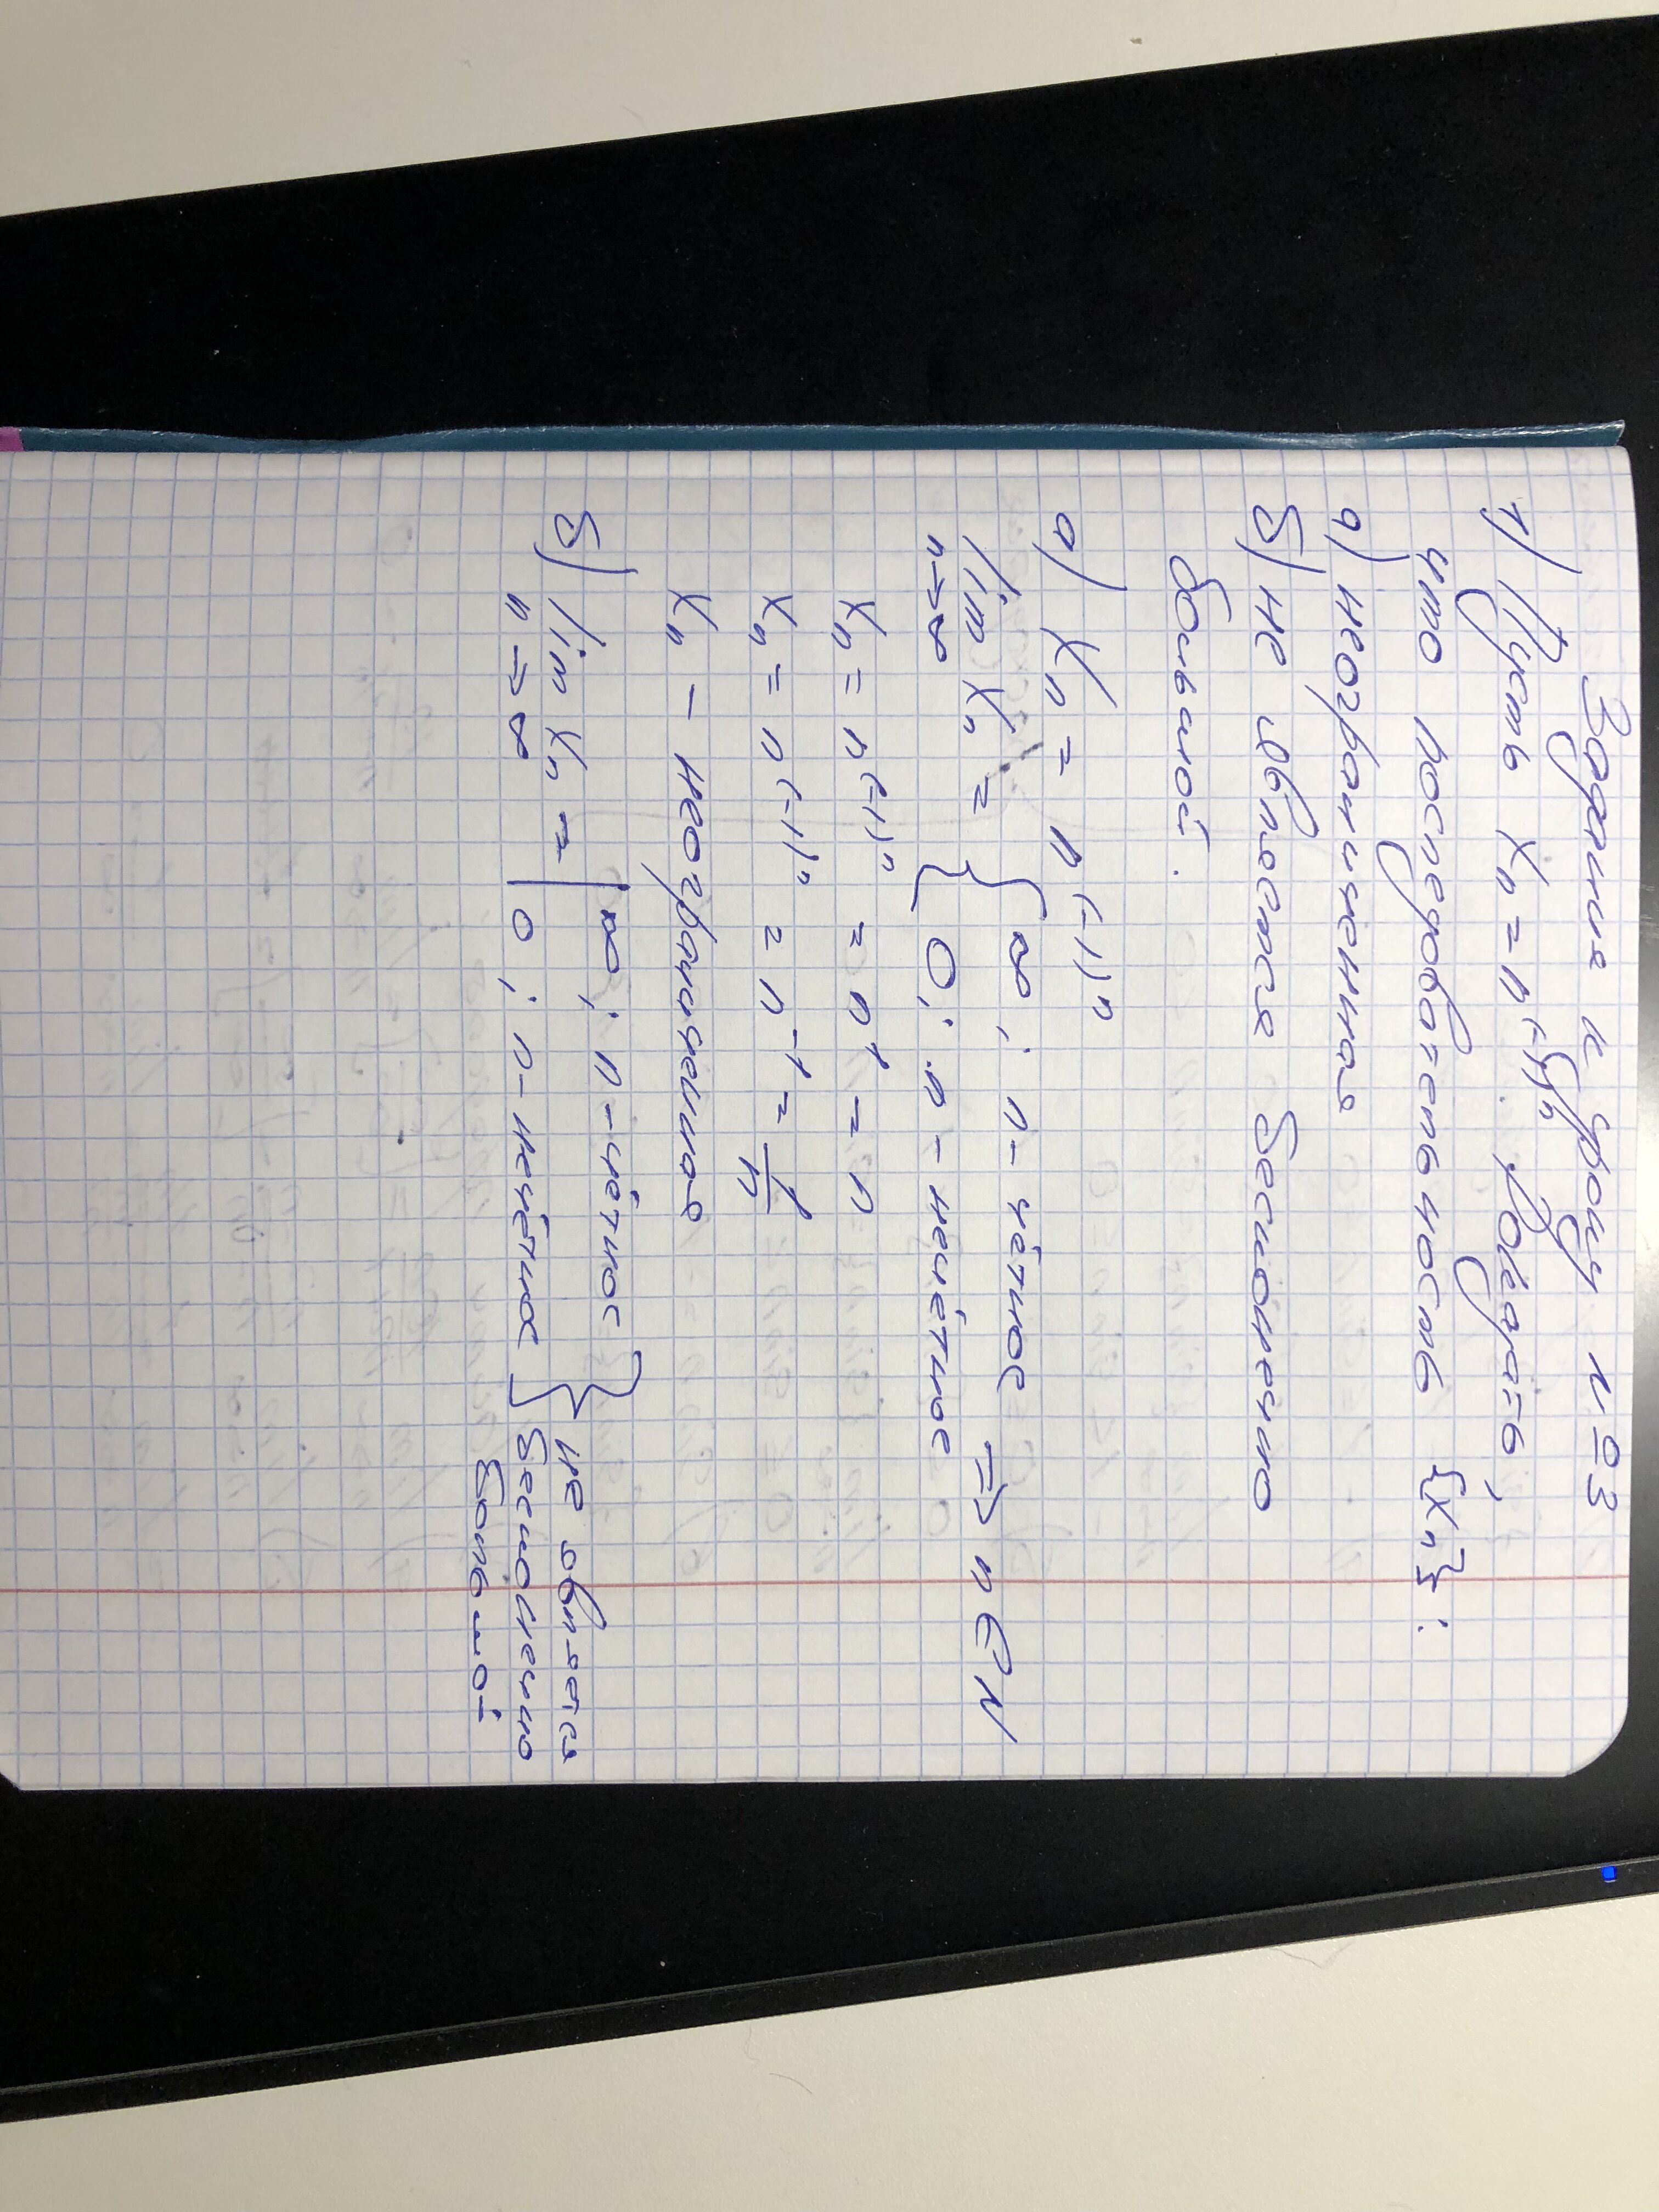 Задание к уроку №3
1) Пусть xₙ = n^(-1)ⁿ. Доказать,
что последовательность {xₙ}:
а) неограниченная
б) не является бесконечно
большой.
а) xₙ = n^(-1)ⁿ
lim xₙ = { ∞; n - чётное
n→∞ { 0; n - нечётное => n ∈ N
xₙ = n^(-1)ⁿ = n¹ = n
xₙ = n^(-1)ⁿ = n⁻¹ = 1/n
xₙ - неограниченная
б) lim xₙ = | ∞; n - чётное } не является
n→∞ | 0; n - нечётное } бесконечно
большой